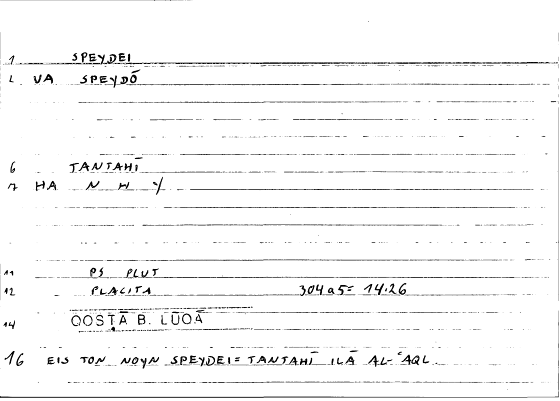 1 SPEYDEI
2 VA SPEYDŌ
6 TANTAHĪ
7 HA N H Y
11 PS PLUT
12 PLACITA 304a5= 14.26
14 QOSṬĀ B. LŪQĀ
16 EIS TON NOYN SPEYDEI= TANTAHĪ ILĀ AL-ʿAQL